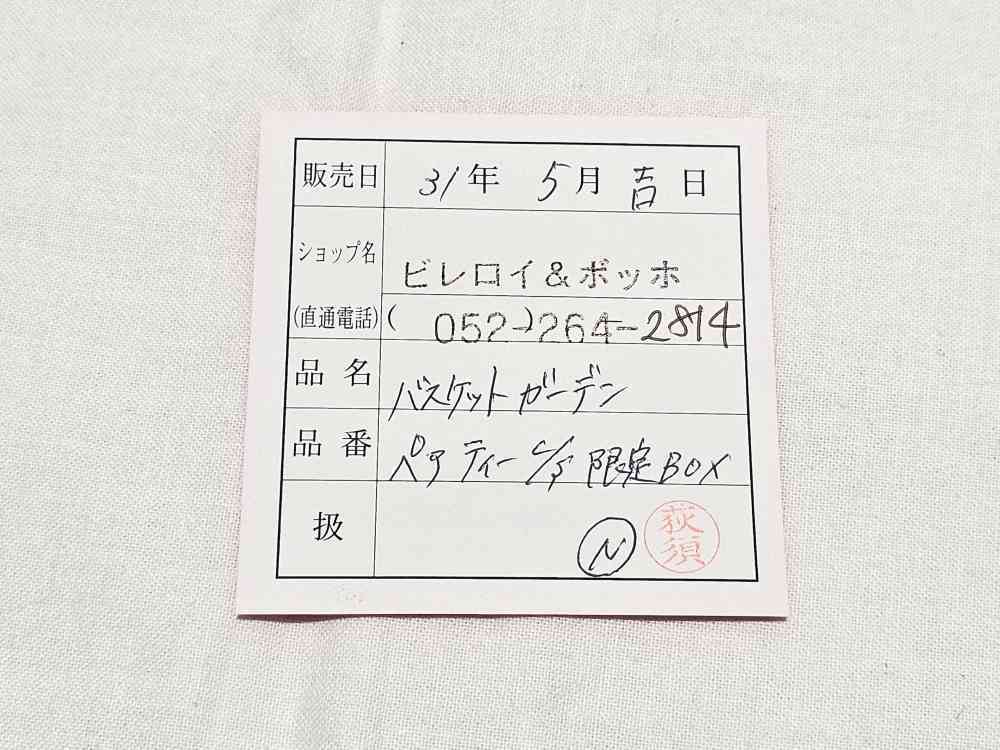 販売日 31年 5月 吉日
ショップ名 ビレロイ&ボッホ
(直通電話) ( 052-)264-2814
品名 バスケットガーデン
品番 ペア ティーC/S 限定BOX
扱 N 荻須